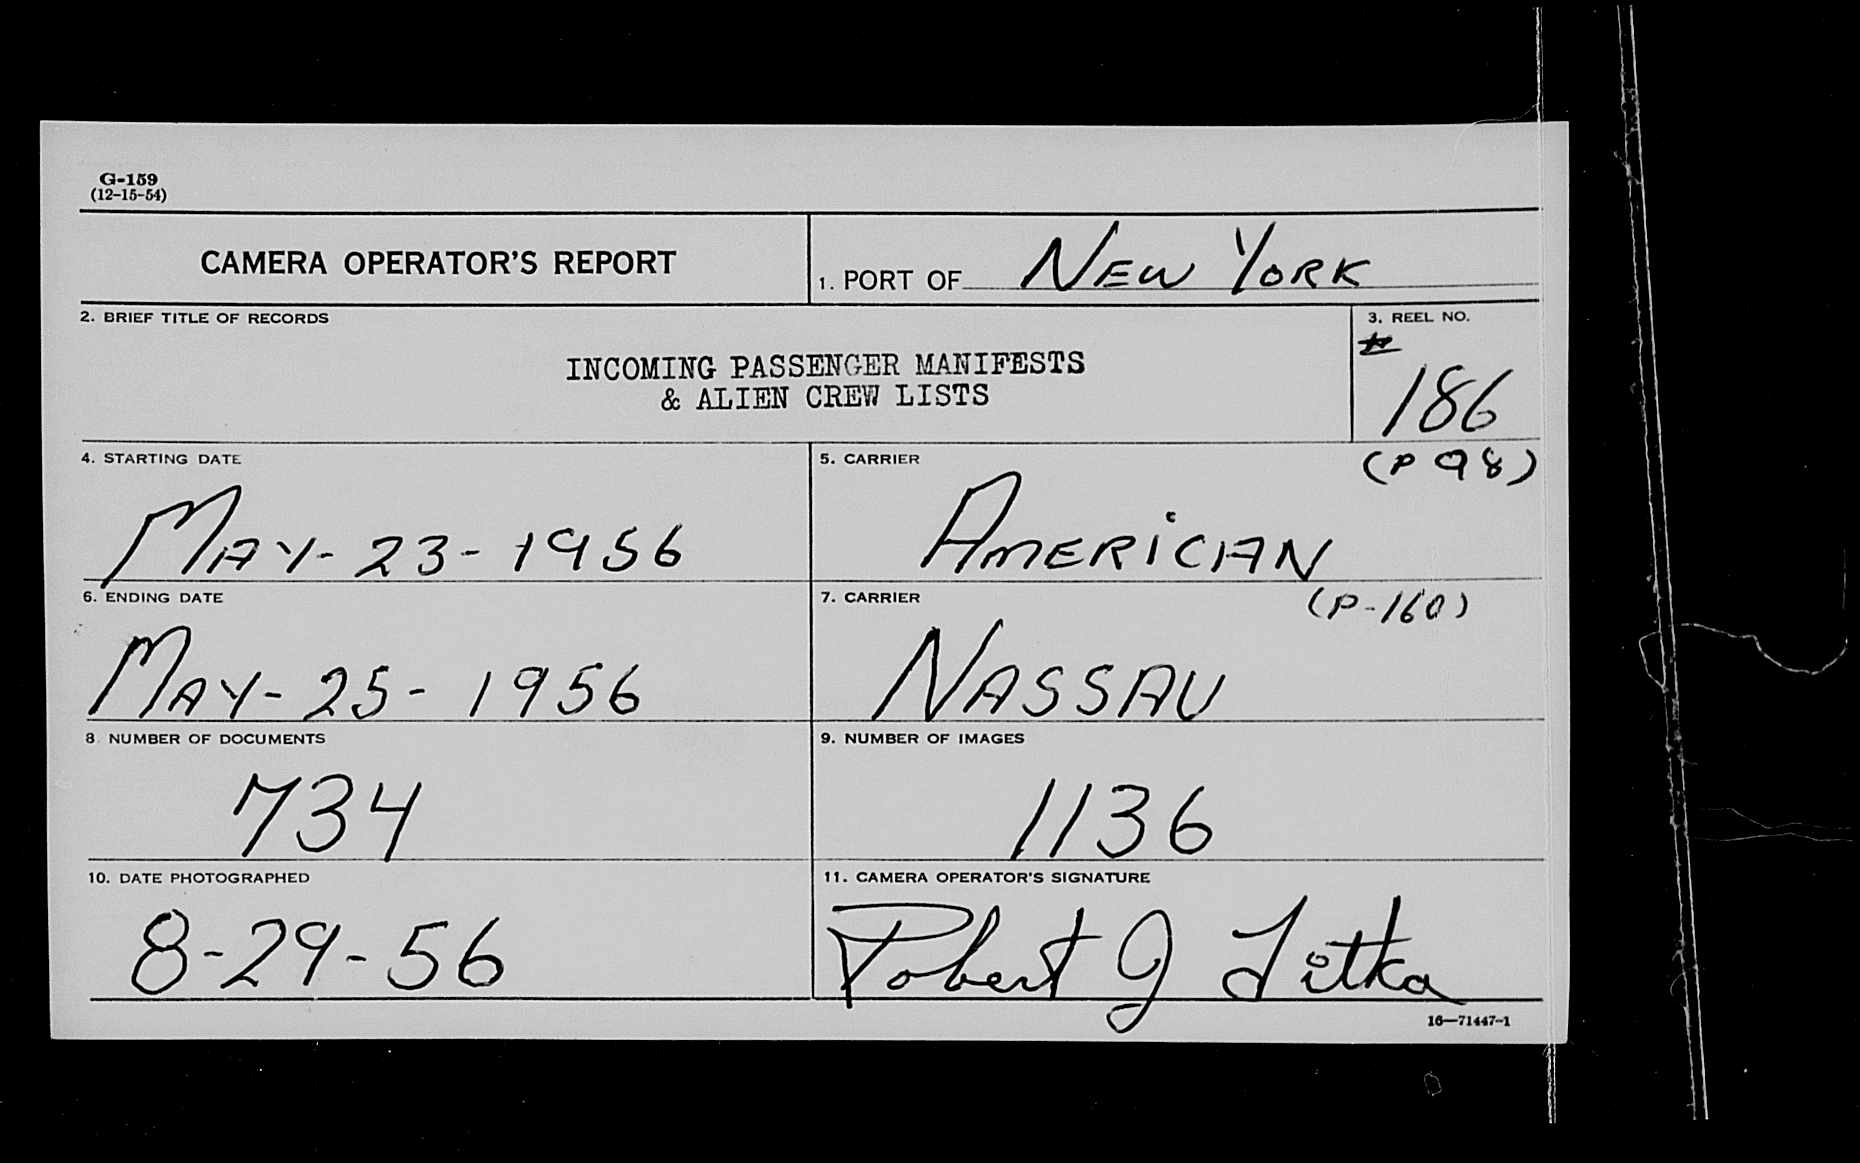 G-159
(12-15-54)
CAMERA OPERATOR'S REPORT
1. PORT OF NEW YORK
2. BRIEF TITLE OF RECORDS
INCOMING PASSENGER MANIFESTS
& ALIEN CREW LISTS
3. REEL NO.
#
186
4. STARTING DATE
MAY-23-1956
5. CARRIER
(P 98)
AMERICAN
6. ENDING DATE
MAY-25-1956
7. CARRIER
(P-160)
NASSAU
8. NUMBER OF DOCUMENTS
734
9. NUMBER OF IMAGES
1136
10. DATE PHOTOGRAPHED
8-29-56
11. CAMERA OPERATOR'S SIGNATURE
Robert J Litka
16—71447-1